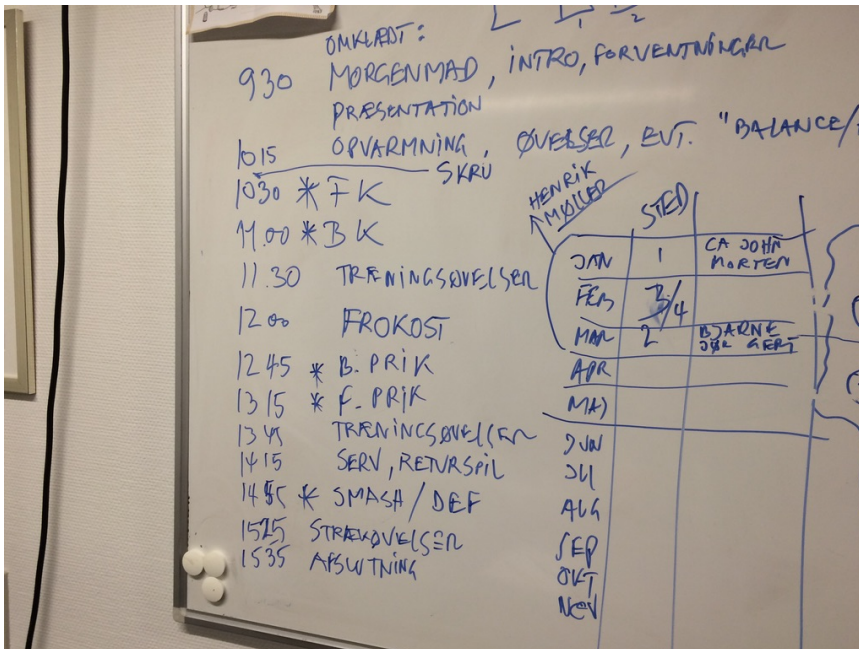 OMKLÆDT:
930 MORGENMAD, INTRO, FORVENTNINGER
PRÆSENTATION
1015 OPVARMNING, ØVELSER, EVT. "BALANCE/
SKRU
1030 * FK
11.00 * BK
11.30 TRÆNINGSØVELSER
1200 FROKOST
1245 * B. PRIK
1315 * F. PRIK
1345 TRÆNINGSØVELSER
1415 SERV, RETURSPIL
1455 * SMASH / DEF
1525 STRÆKØVELSER
1535 AFSLUTNING
HENRIK
MØLLER
STED
JAN 1 CA JOHN
MORTEN
FEB 3/4
MAR 2 BJARNE
GERT
APR
MAJ
JUN
JUL
AUG
SEP
OKT
NOV